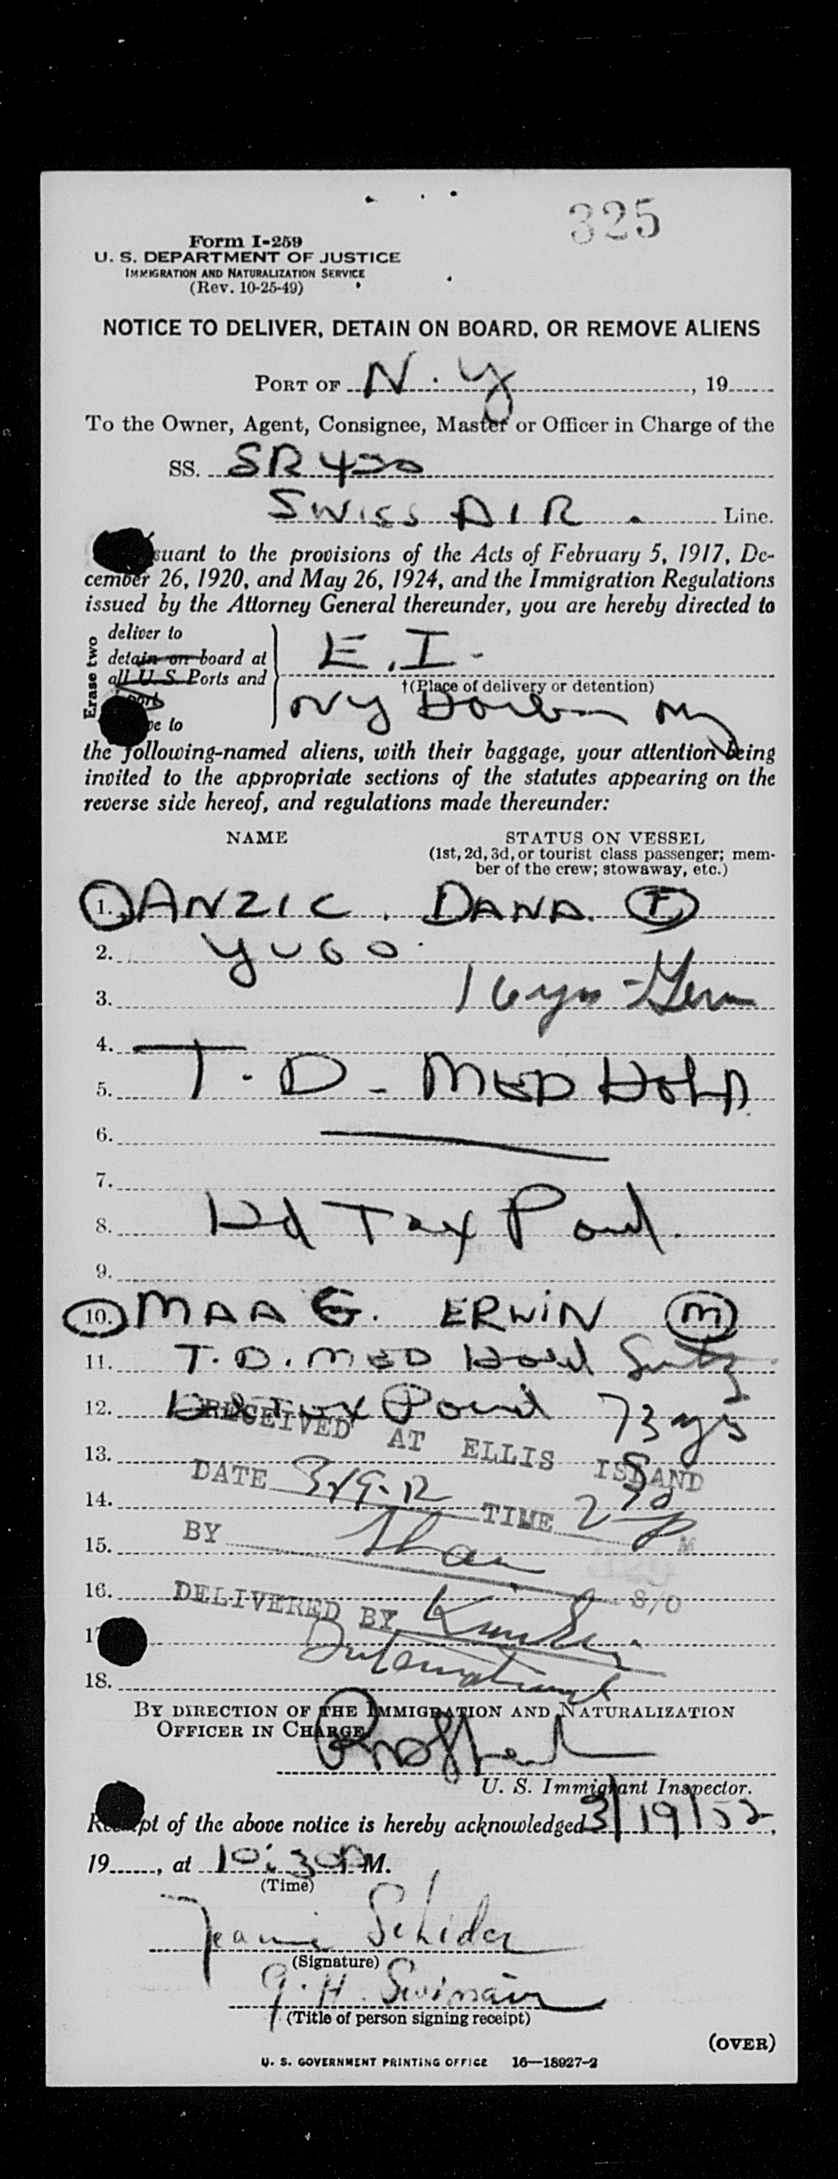 325
Form I-259
U. S. DEPARTMENT OF JUSTICE
IMMIGRATION AND NATURALIZATION SERVICE
(Rev. 10-25-49)
NOTICE TO DELIVER, DETAIN ON BOARD, OR REMOVE ALIENS
PORT OF N. Y , 19
To the Owner, Agent, Consignee, Master or Officer in Charge of the
SS. SR 420
SWISS AIR. Line.
suant to the provisions of the Acts of February 5, 1917, De-
cember 26, 1920, and May 26, 1924, and the Immigration Regulations
issued by the Attorney General thereunder, you are hereby directed to
Erase two
deliver to
detain on board at
all U. S. Ports and
E. I.
†(Place of delivery or detention)
NY Harbor NY
to
the following-named aliens, with their baggage, your attention being
invited to the appropriate sections of the statutes appearing on the
reverse side hereof, and regulations made thereunder:
NAME STATUS ON VESSEL
(1st, 2d, 3d, or tourist class passenger; mem-
ber of the crew; stowaway, etc.)
1. ANZIC, DANA. F
2. YUGO.
3. 16 yrs - Germ
4.
5. T. D - MED HOLD
6.
7.
8. Hd Tax Paid.
9.
10. MAAG. ERWIN M
11. T. D. MED Hold Switz
12. Hd Tax Paid 73 yrs
RECEIVED AT ELLIS ISLAND
13.
DATE TIME M
14.
15. BY
16. S/O
DELIVERED BY
17
International
18.
BY DIRECTION OF THE IMMIGRATION AND NATURALIZATION
OFFICER IN CHARGE
U. S. Immigrant Inspector.
Receipt of the above notice is hereby acknowledged 3/19/52,
19, at 10:30 M.
(Time)
(Signature)
(Title of person signing receipt)
(OVER)
U. S. GOVERNMENT PRINTING OFFICE 16—18927-2